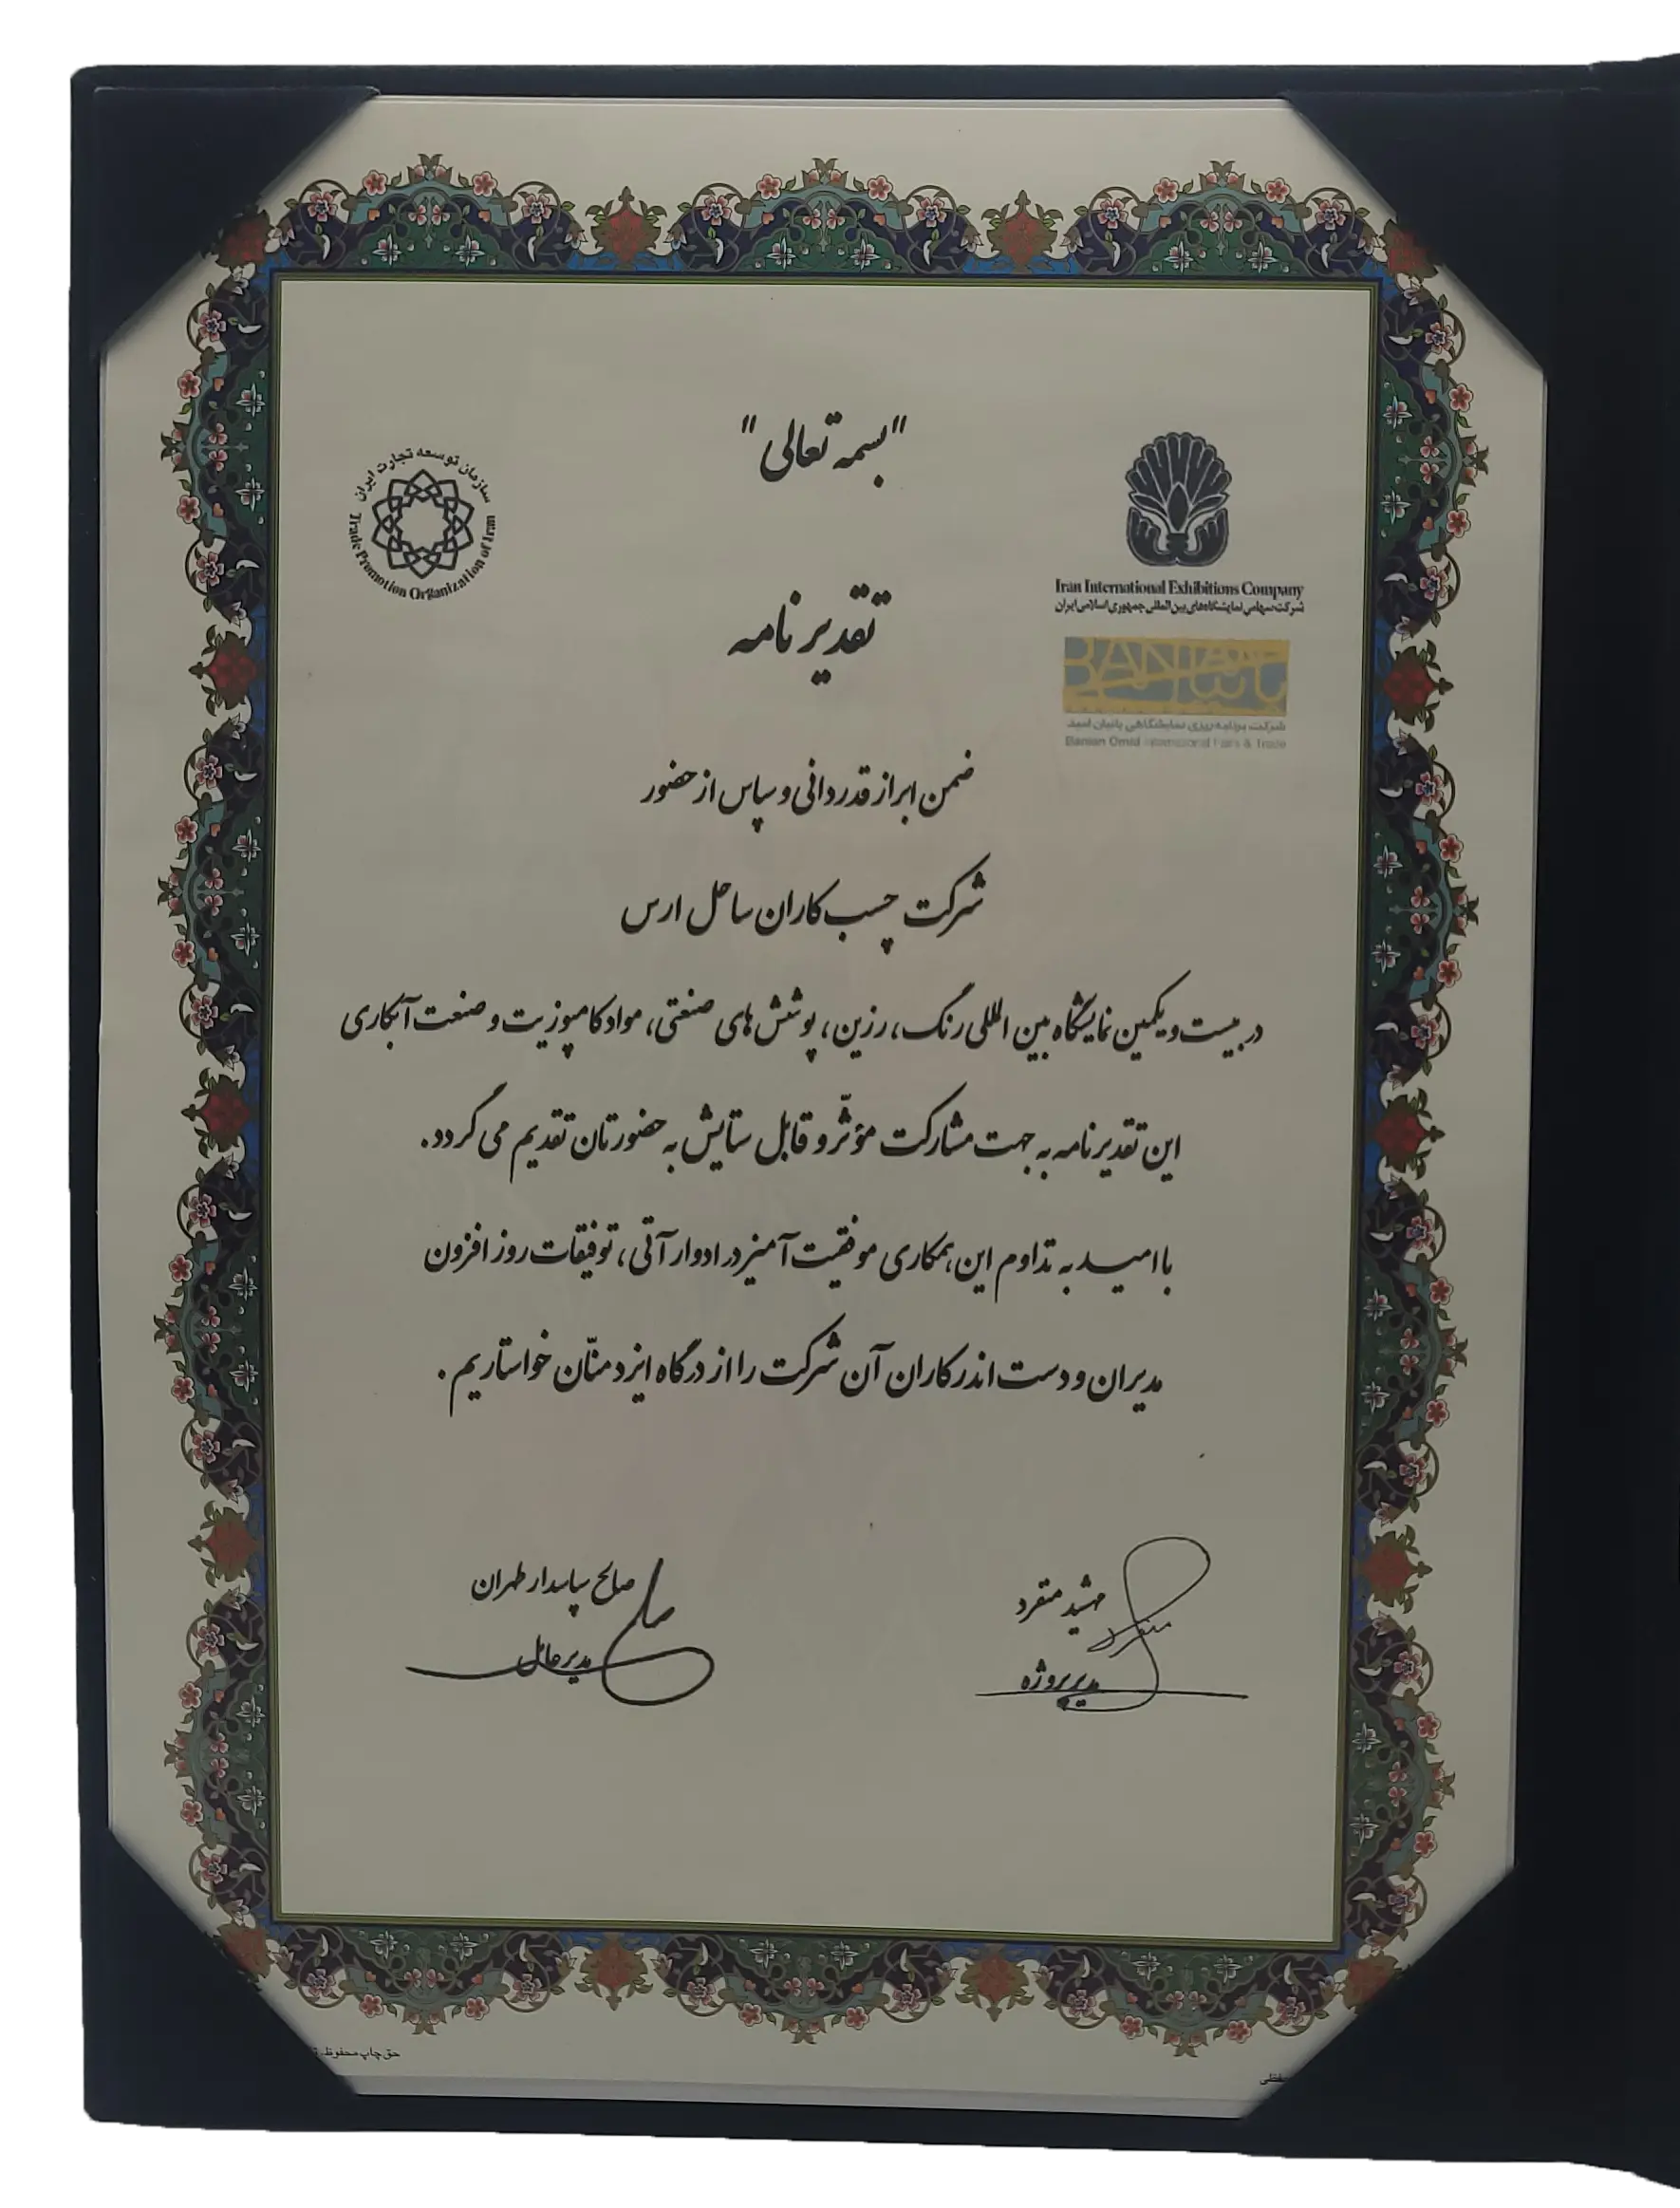 "بسمه تعالی"
سازمان توسعه تجارت ایران
Trade Promotion Organization of Iran
Iran International Exhibitions Company
شرکت سهامی نمایشگاه‌های بین المللی جمهوری اسلامی ایران
BANIAN
بانیان
شرکت برنامه ریزی نمایشگاهی بانیان امید
Banian Omid International Fairs & Trade
تقدیرنامه
ضمن ابراز قدردانی و سپاس از حضور
شرکت چسب کاران ساحل ارس
در بیست و یکمین نمایشگاه بین المللی رنگ، رزین، پوشش های صنعتی، مواد کامپوزیت و صنعت آبکاری
این تقدیرنامه به جهت مشارکت مؤثّر و قابل ستایش به حضورتان تقدیم می گردد.
با امید به تداوم این همکاری موفقیت آمیز در ادوار آتی، توفیقات روز افزون
مدیران و دست اندرکاران آن شرکت را از درگاه ایزد منّان خواستاریم.
مهشید منفرد
مدیر پروژه
صالح سپاسدار طهران
مدیرعامل
حق چاپ محفوظ